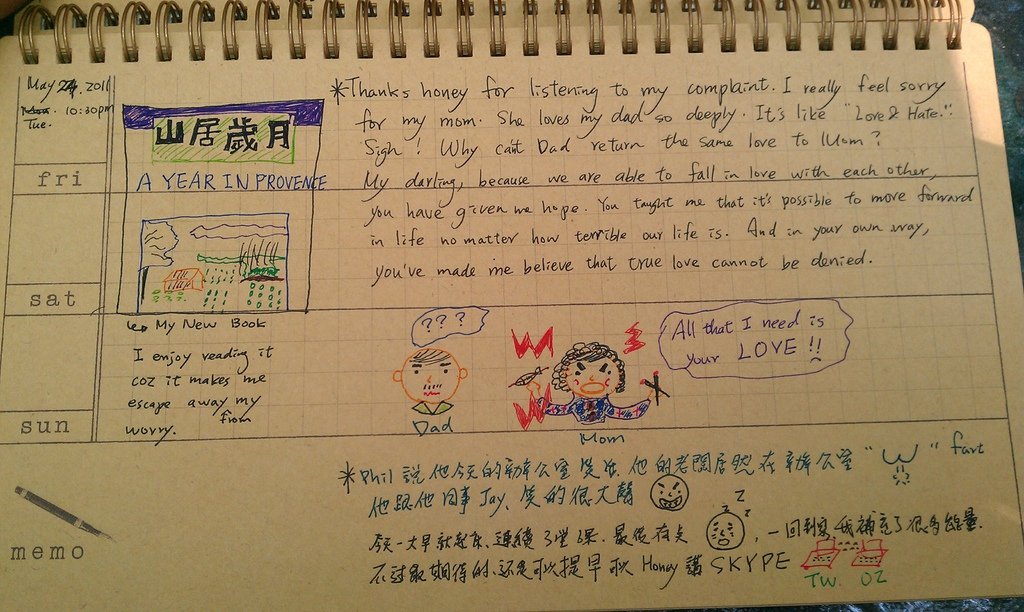 May 24. 2011
Mon. 10:30pm
Tue.
fri
sat
sun
memo
山居歲月
A YEAR IN PROVENCE
My New Book
I enjoy reading it
coz it makes me
escape away my
from
worry.
*Thanks honey for listening to my complaint. I really feel sorry
for my mom. She loves my dad so deeply. It's like "Love & Hate."
Sigh! Why can't Dad return the same love to Mom?
My darling, because we are able to fall in love with each other,
you have given me hope. You taught me that it's possible to move forward
in life no matter how terrible our life is. And in your own way,
you've made me believe that true love cannot be denied.
???
Dad
Mom
All that I need is
your LOVE!!
*Phil 說他今天的辦公室笑話, 他的老闆居然在辦公室 " " fart
他跟他同事 Jay, 笑的很大聲
z z z
今天一大早就起床、連續 堂課、最後有点 , 一回到 我補充了很多能量.
不過最期待的、還是可以提早可以 Honey 講 SKYPE
TW. OZ